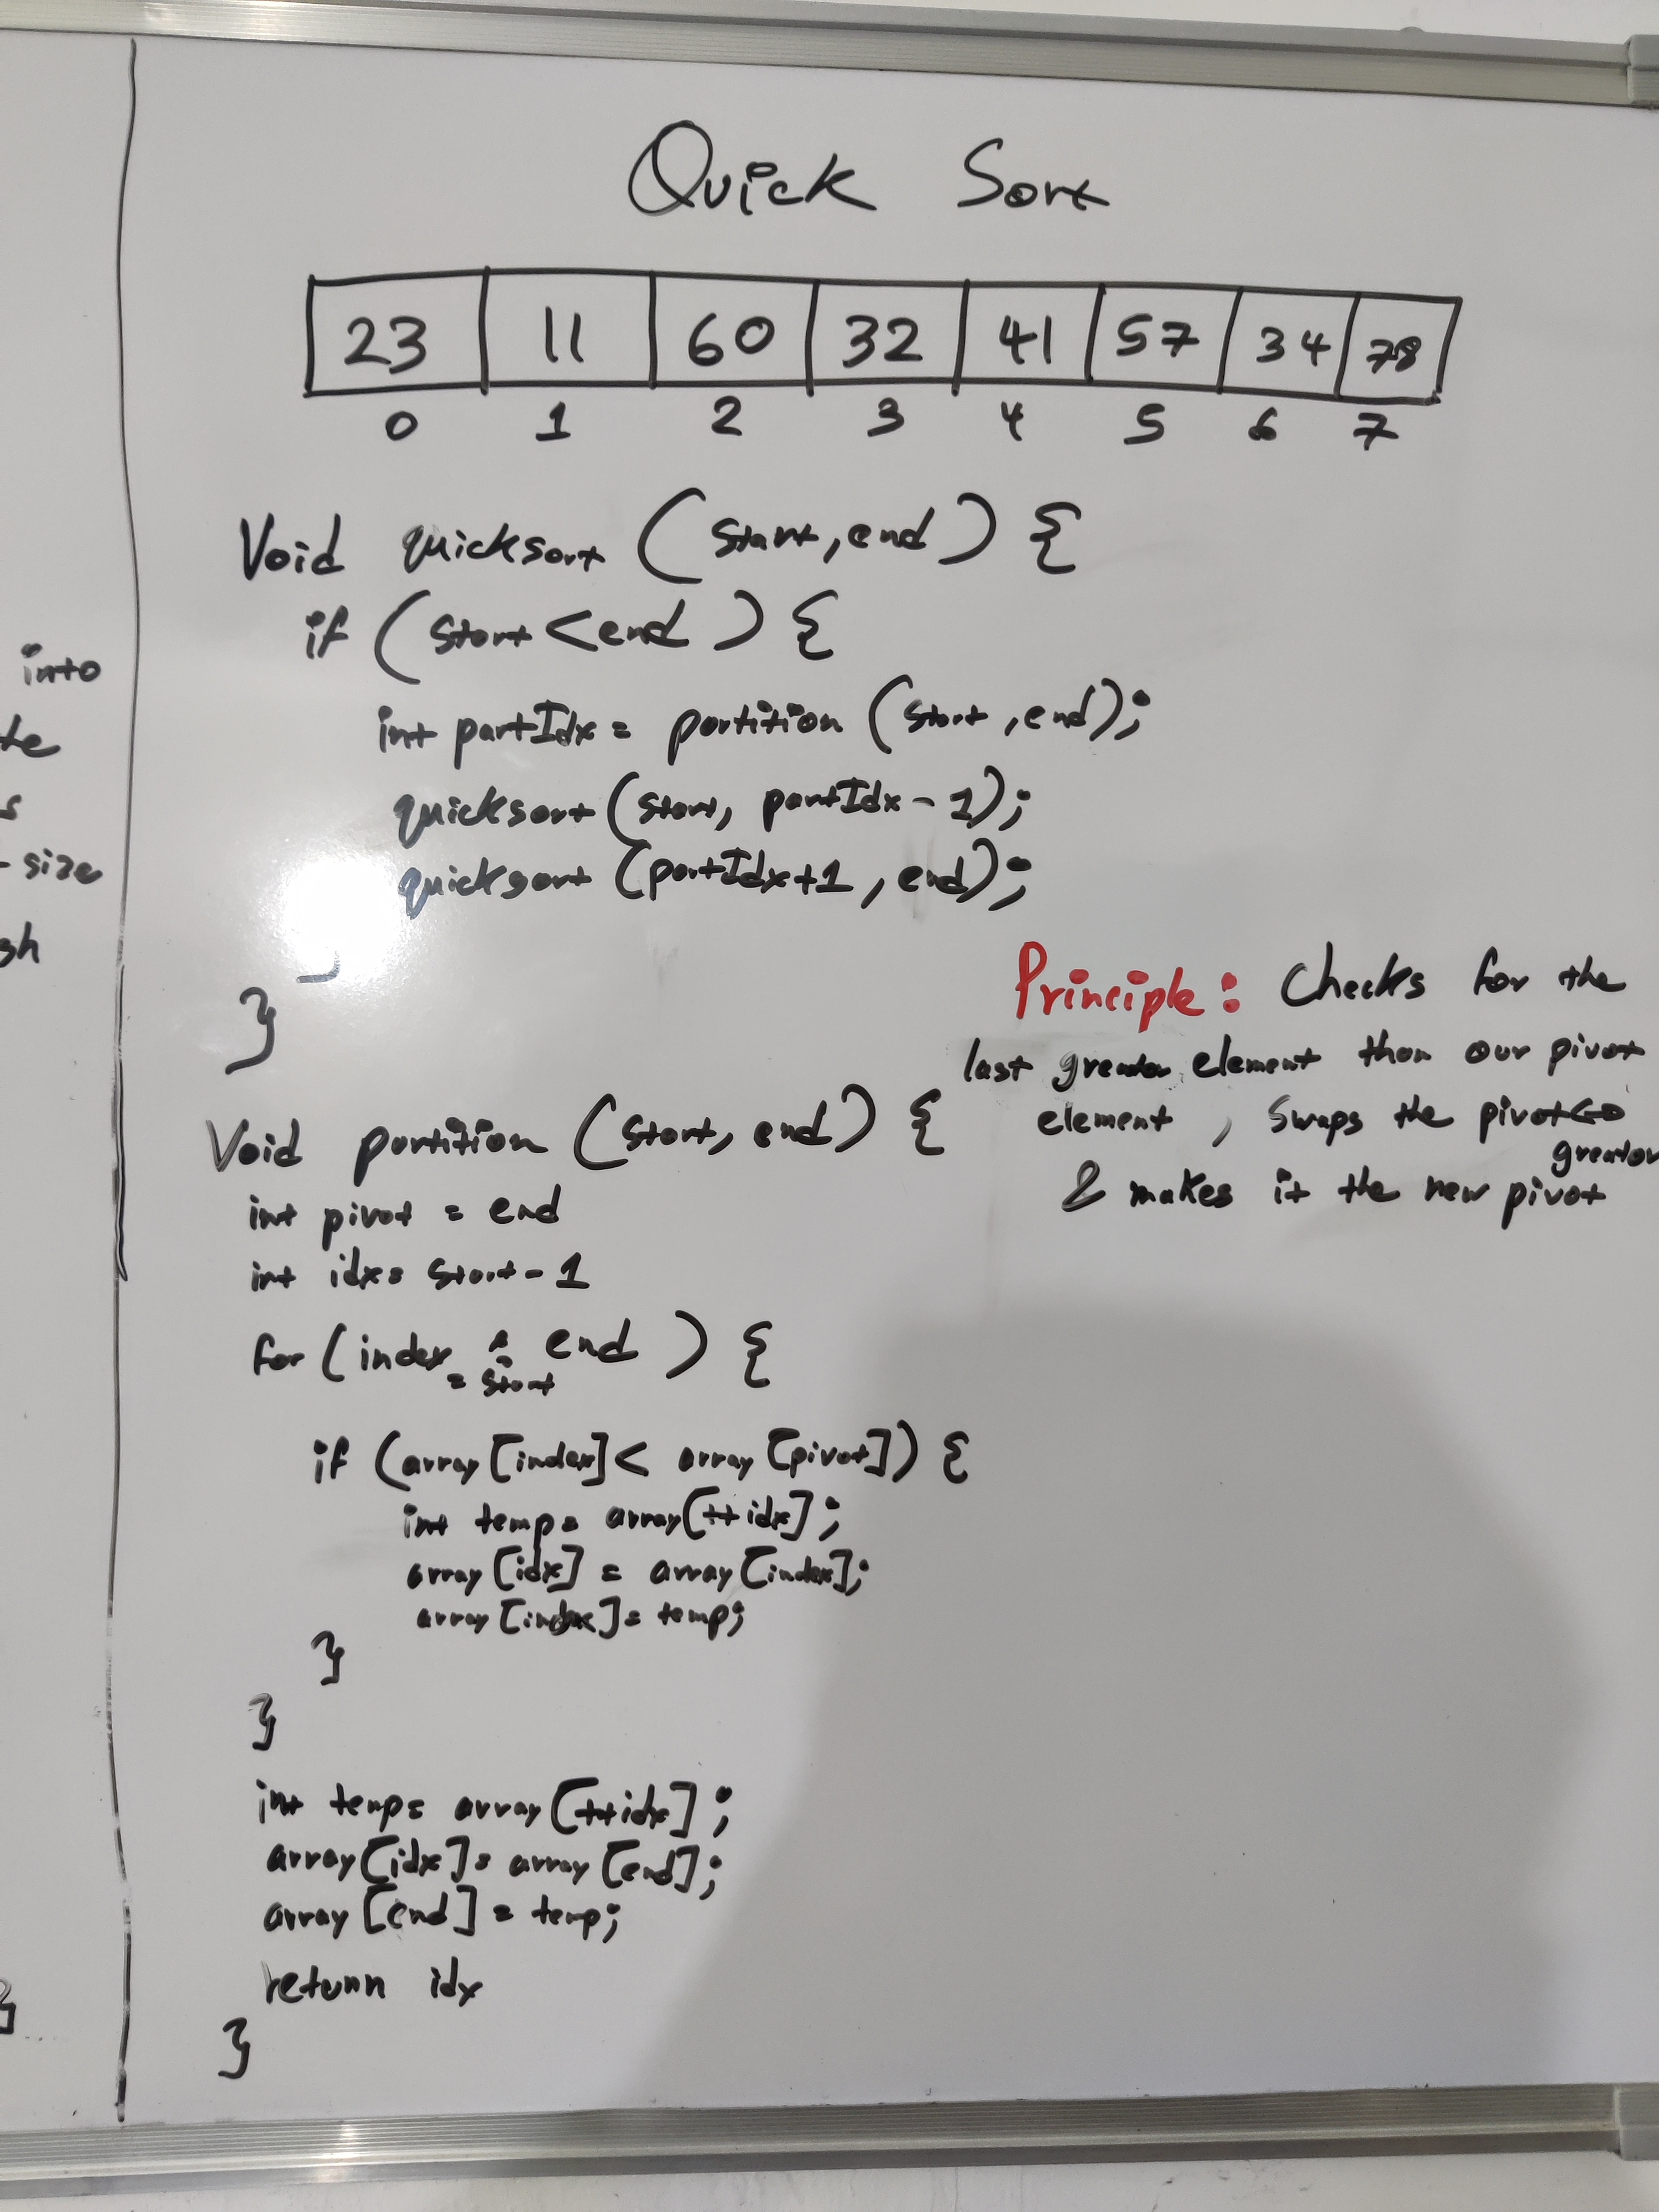 into
te
s
size
sh
Quick Sort
23 11 60 32 41 57 34 78
0 1 2 3 4 5 6 7
Void quicksort (start, end) {
if (start < end) {
int partIdx = partition (start, end);
quicksort (start, partIdx - 1);
quicksort (partIdx+1, end);
}
Principle: Checks for the
last greater element than our pivot
element, swaps the pivot<->
greater
& makes it the new pivot
Void partition (start, end) {
int pivot = end
int idx= start - 1
for (index = start : end) {
if (array [index] < array [pivot]) {
int temp= array[++idx];
array [idx] = array [index];
array [index]= temp;
}
}
int temp= array [++idx];
array [idx]= array [end];
array [end] = temp;
return idx
}